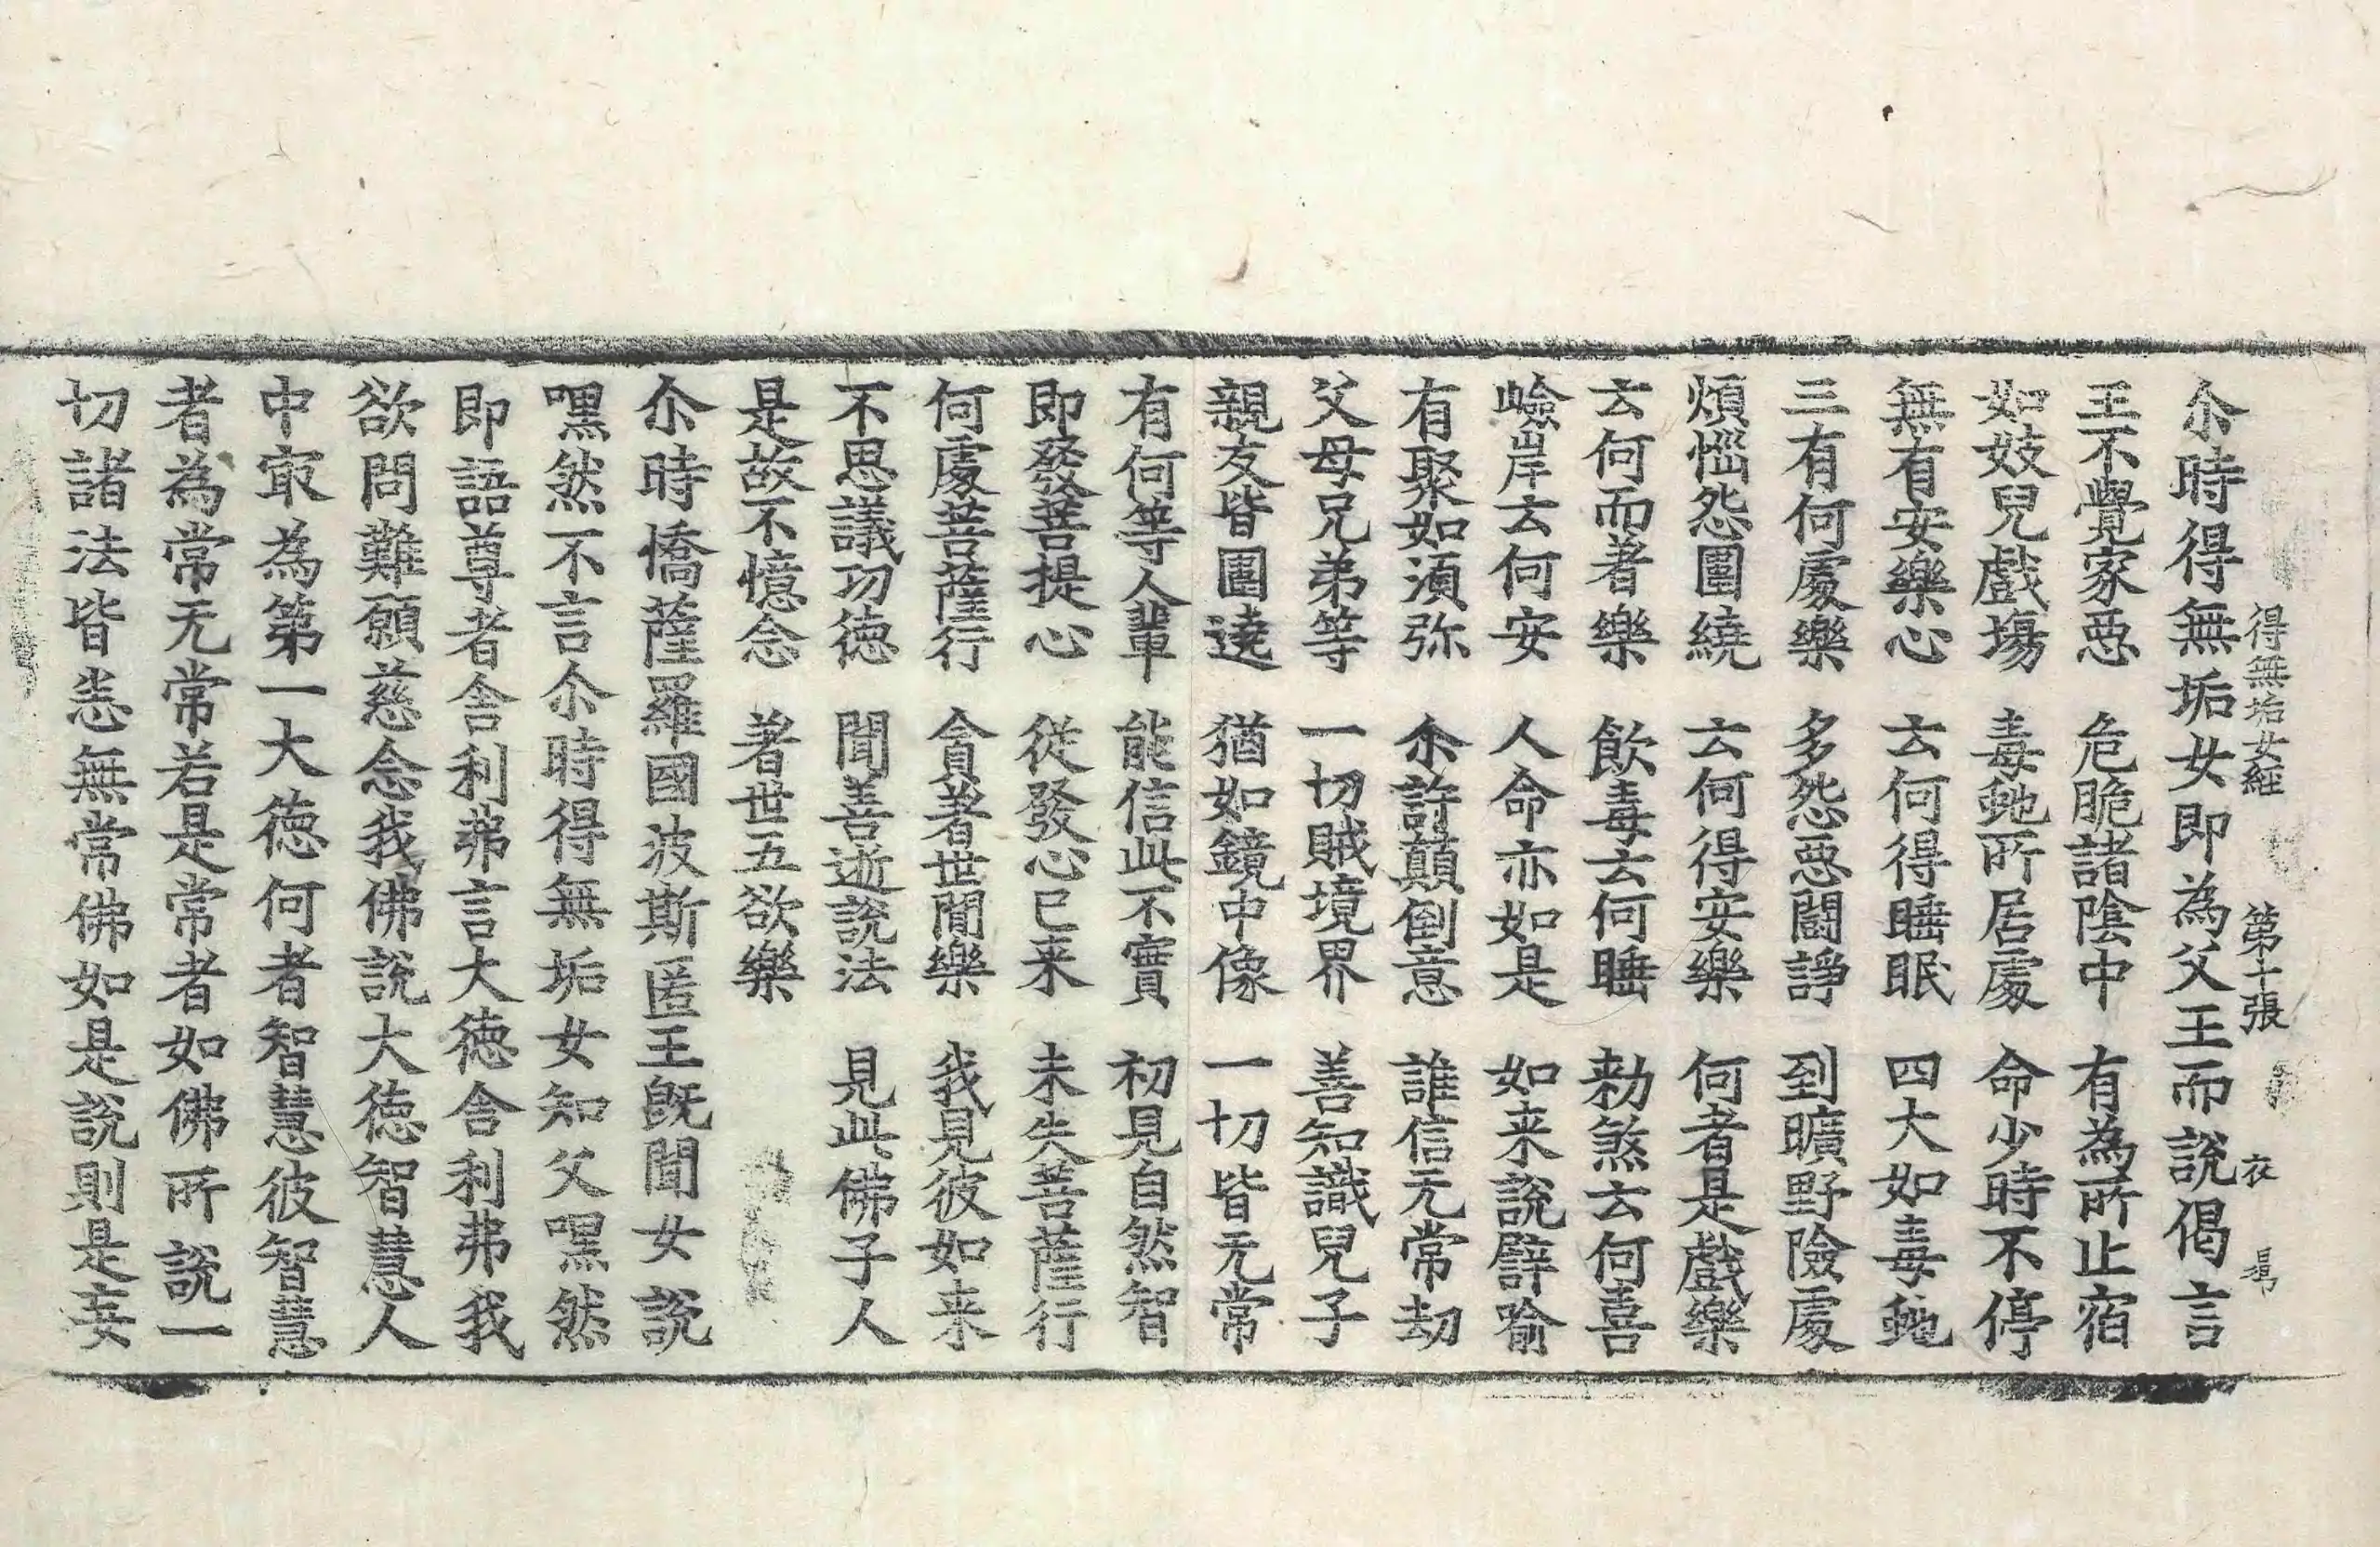 得無垢女經 第十張 衣
尒時得無垢女即為父王而說偈言
王不覺家惡 危脆諸陰中 有為所止宿
如妓兒戲場 毒虵所居處 命少時不停
無有安樂心 云何得睡眠 四大如毒虵
三有何處樂 多怨惡鬪諍 到曠野險處
煩惱怨圍繞 云何得安樂 何者是戲樂
云何而著樂 飲毒云何睡 勑煞云何喜
嶮岸云何安 人命亦如是 如来說譬喻
有聚如湏弥 尒許顛倒意 誰信无常劫
父母兄弟等 一切賊境界 善知識兒子
親友皆圍遶 猶如鏡中像 一切皆无常
有何等人輩 能信此不實 初見自然智
即發菩提心 從發心已来 未失菩薩行
何處菩薩行 貪著世間樂 我見彼如来
不思議功徳 聞善逝說法 見此佛子人
是故不憶念 著世五欲樂
尒時憍薩羅國波斯匿王旣聞女說
嘿然不言尒時得無垢女知父嘿然
即語尊者舎利弗言大徳舎利弗我
欲問難願慈念我佛說大徳智慧人
中㝡為第一大徳何者智慧彼智慧
者為常无常若是常者如佛所說一
切諸法皆悉無常佛如是說則是妄